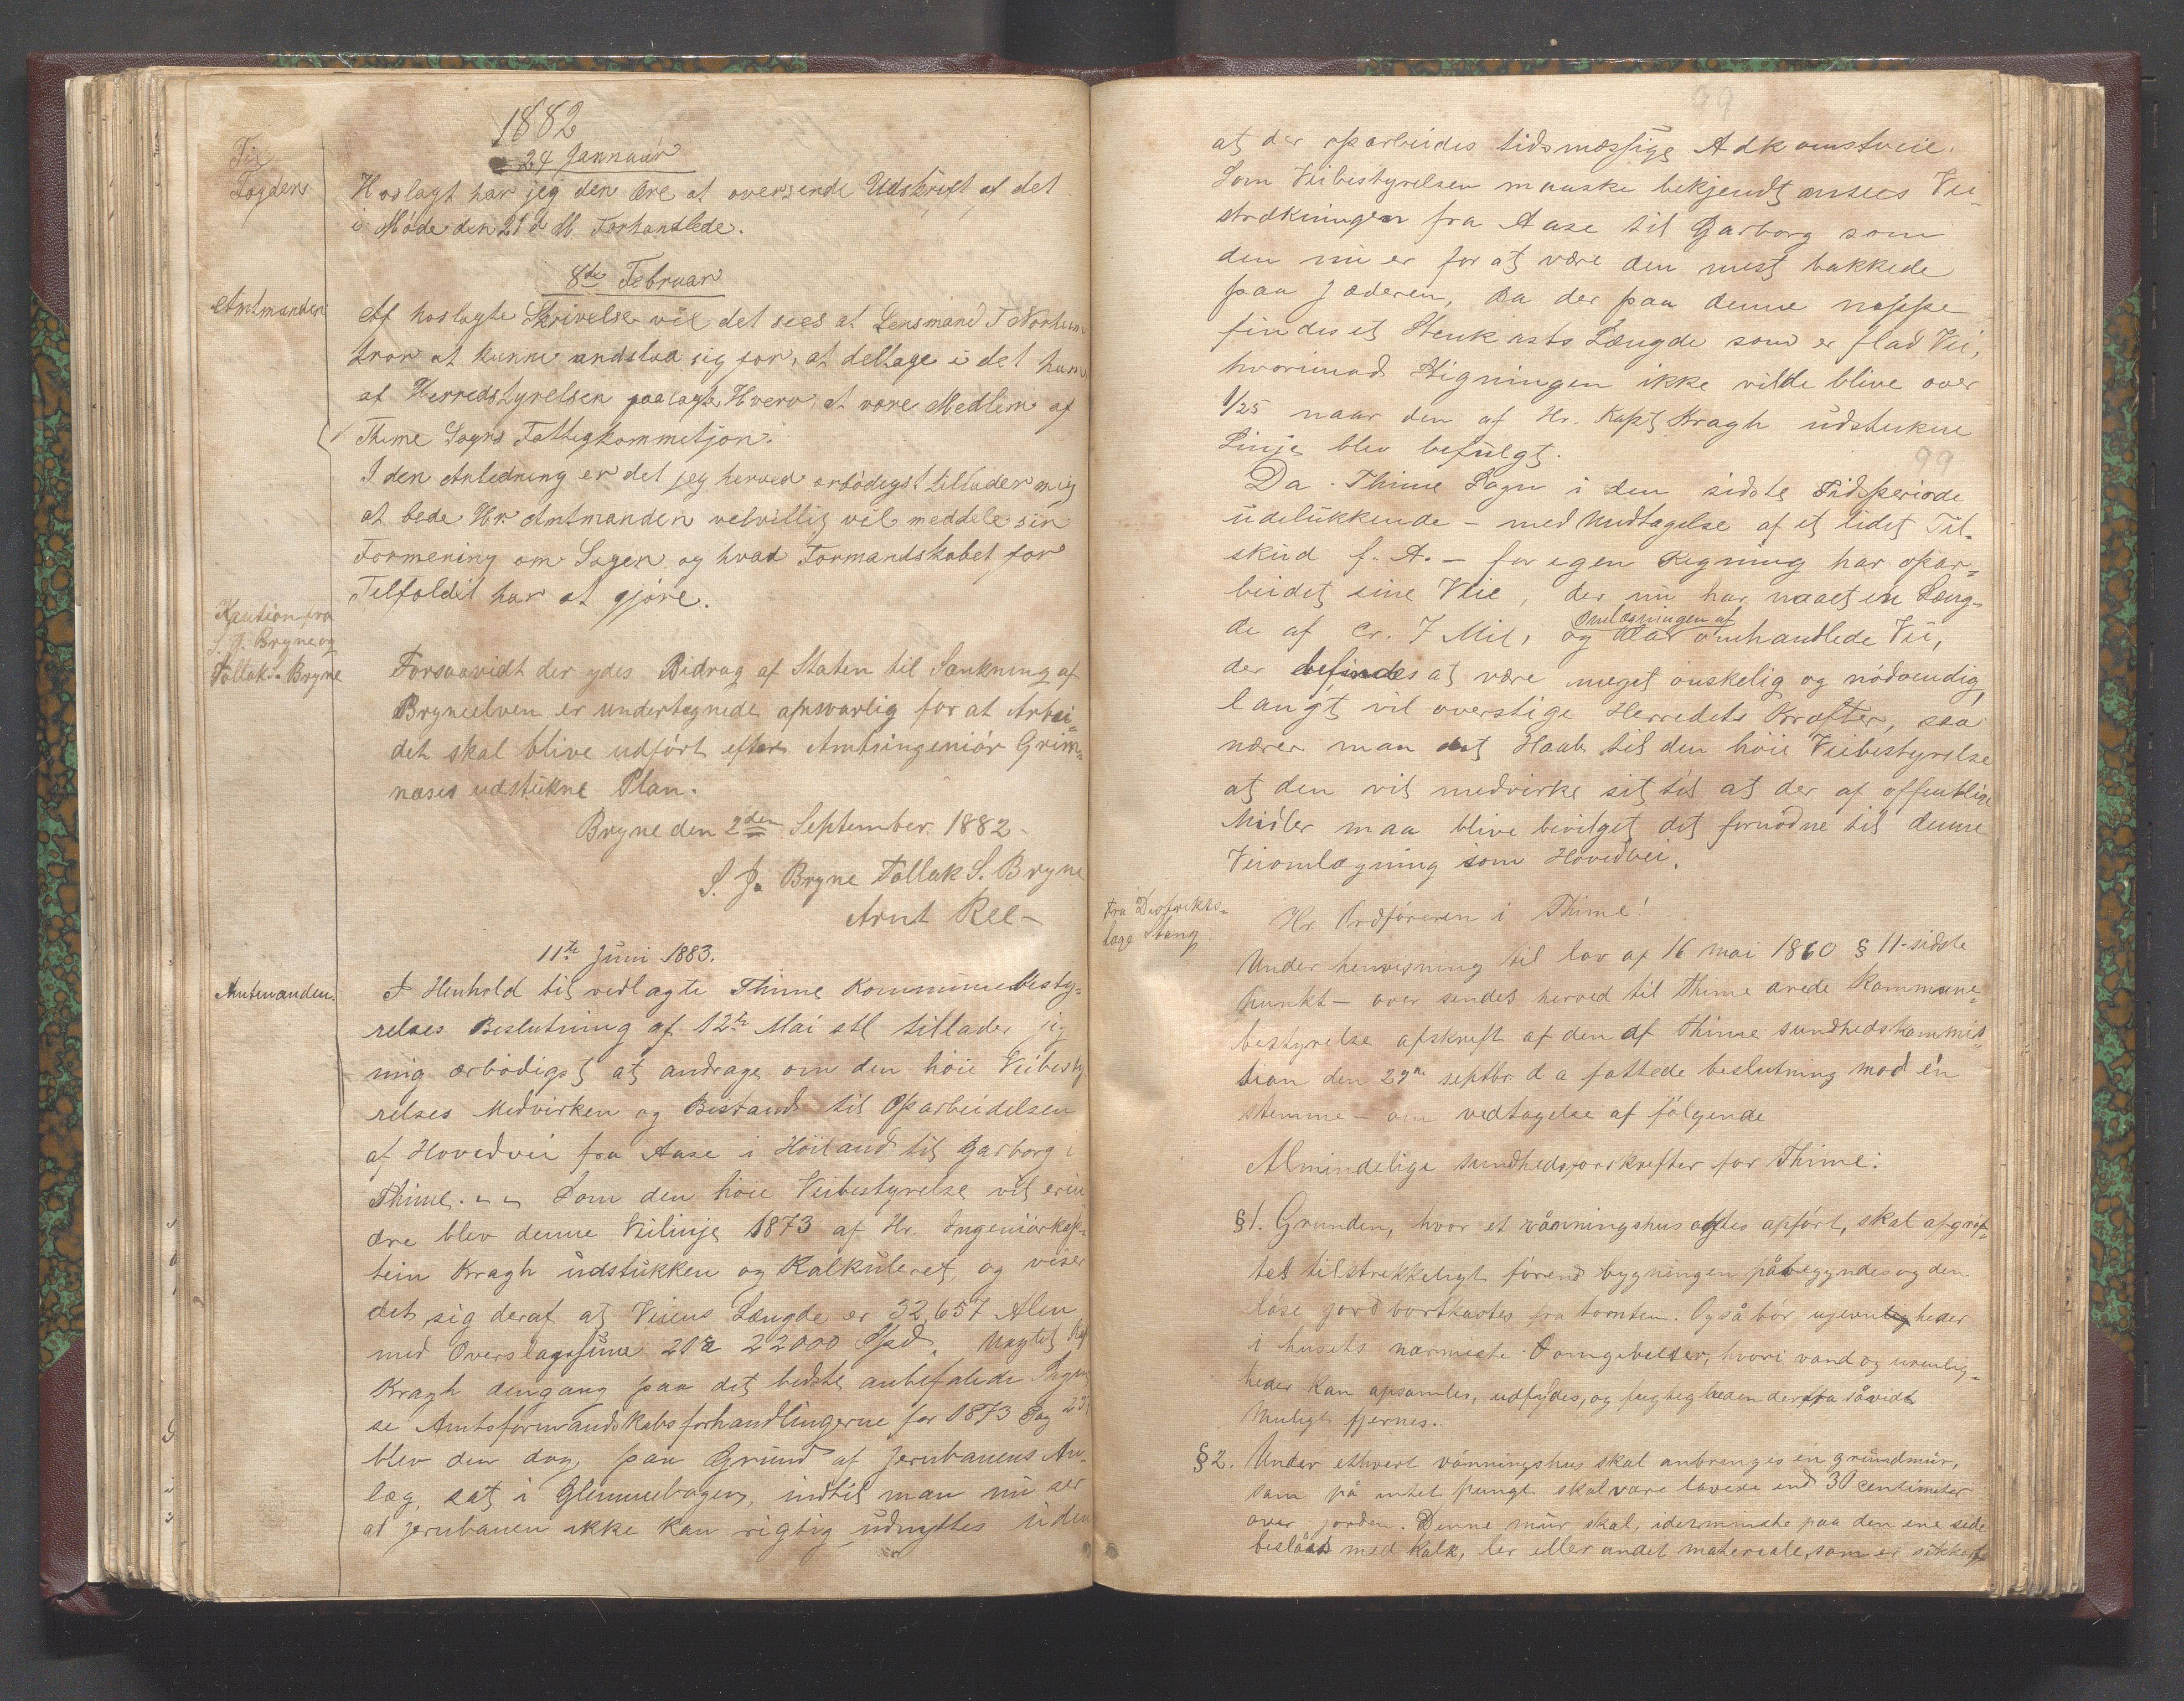 1882
24 Januar
Til
Fogden
Hoslagt har jeg den ære at oversende Udskrift af det
i Møde den 21 d M. Forhandlede.
8de Februar
Amtmanden
Af hoslagte Skrivelse vil det sees at Lensmand T Norheim
tror at kunne undslaa sig for, at deltage i det ham
af Herredstyrelsen paalagte Hverv, at være Medlem af
Thime Sogns Fattigkommitjon.
I den Anledning er det jeg herved ærbødigst tillader mig
at bede Hr Amtmanden velvillig vil meddele sin
Formening om Sagen og hvad Formandskabet for
Tilfældet har at gjøre.
Kaution fra
S. J. Bryne og
Tollak S. Bryne
Forsaavidt der ydes Bidrag af Staten til Sænkning af
Bryneelven er undertegnede ansvarlig for at Arbei-
det skal blive udført efter Amtsingeniør Grim-
næses udstukne Plan.
Bryne den 2den September 1882.
S. J. Bryne Tollak S. Bryne
Arnt Ree
11te Juni 1883.
Amtmanden.
I Henhold til vedlagte Thime Kommunebesty-
relses Beslutning af 12te Mai stl tillader jeg
mig ærbødigst at andrage om den høie Veibesty
relses Medvirken og Bistand til Oparbeidelsen
af Hovedvei fra Aase i Høiland til Garborg i
Thime. Som den høie Veibestyrelse vil erin
dre blev denne Veilinje 1873 af Hr. Ingeniørkap-
tein Kragh udstukken og Kalkuleret, og viser
det sig deraf at Veiens Længde er 32,657 Alen
med Overslagssum 21 a 22000 Spd. Uagtet Kap
Kragh dengang paa det bedste anbefalede Sagen
se Amtsformandskabsforhandlingerne for 1873 Sag
blev den dog, paa Grund af Jernbanens An-
læg, sat i Glemmebogen, indtil man nu ser
at Jernbanen ikke kan rigtig udnyttes uden
99
at der oparbeides tidsmæssige Adkomstveie.
Som Veibestyrelsen maaske bekjendt ansees Vei-
strækningen fra Aase til Garborg som
den nu er for at være den mest bakkede
paa Jæderen, da der paa denne neppe
findes et Stenkasts Længde som er flad Vei,
hvorimod Stigningen ikke vilde blive over
1/25 naar den af Hr. Kapt Kragh udstukne
Linje blev befulgt.
99
Da Thime Sogn i den sidste Tidsperiode
udelukkende - med Undtagelse af et lidet Til-
skud f. A. - for egen Regning har opar-
beidet sine Veie, der nu har naaet en Læng-
de af cr. 7 Mil, og da omhandlede Vei,
Omlægningen af
der befindes at være meget ønskelig og nødvendig,
langt vil overstige Herredets Kræfter, saa
nærer man det Haab til den høie Veibestyrelse
at den vil medvirke sit til at der af offentlige
Midler maa blive bevilget det fornødne til denne
Veiomlægning som Hovedvei.
Fra Distrikts-
læge Stang
Hr. Ordføreren i Thime!
Under henvisning til lov af 16 mai 1860 § 11-sidste
Punkt - over sendes herved til Thime ærede Kommune-
bestyrelse afskrift af den af Thime sundhedskommis-
sion den 29de septbr. d a fattede beslutning mod én
stemme - om vedtagelse af følgende
Almindelige sundhedsforskrefter for Thime:
§ 1. Grunden, hvor et våningshus agtes opført, skal afgrøf-
tes tilstrækkeligt førend bygningen påbegyndes og den
løse jord bortkastes fra tomten. Også bør ujevnheder
i husets nærmeste omgivelser, hvori vand og urenlig-
heder kan opsamles, udfyldes, og fugtigheden derfra såvidt
Muligt fjernes.
§ 2. Under ethvert våningshus skal anbringes en grundmur,
som på intet punkt skal være lavere end 30 centimeter
over jorden. Denne mur skal, idetmindste paa den ene side
beslåes med Kalk, ler eller andet materiale, som er sikkert